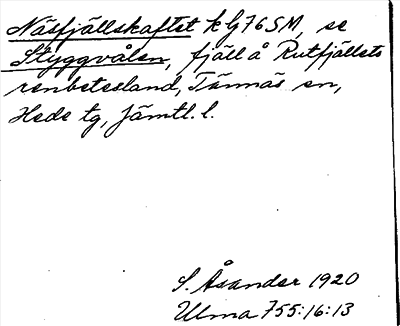 Näsfjällskaftet k G76SM, se
Styggvålen, fjäll å Rutfjällets
renbetesland, Tännäs sn,
Hede tg, Jämtl. l.
S. Åsander 1920
Ulma 755:16:13